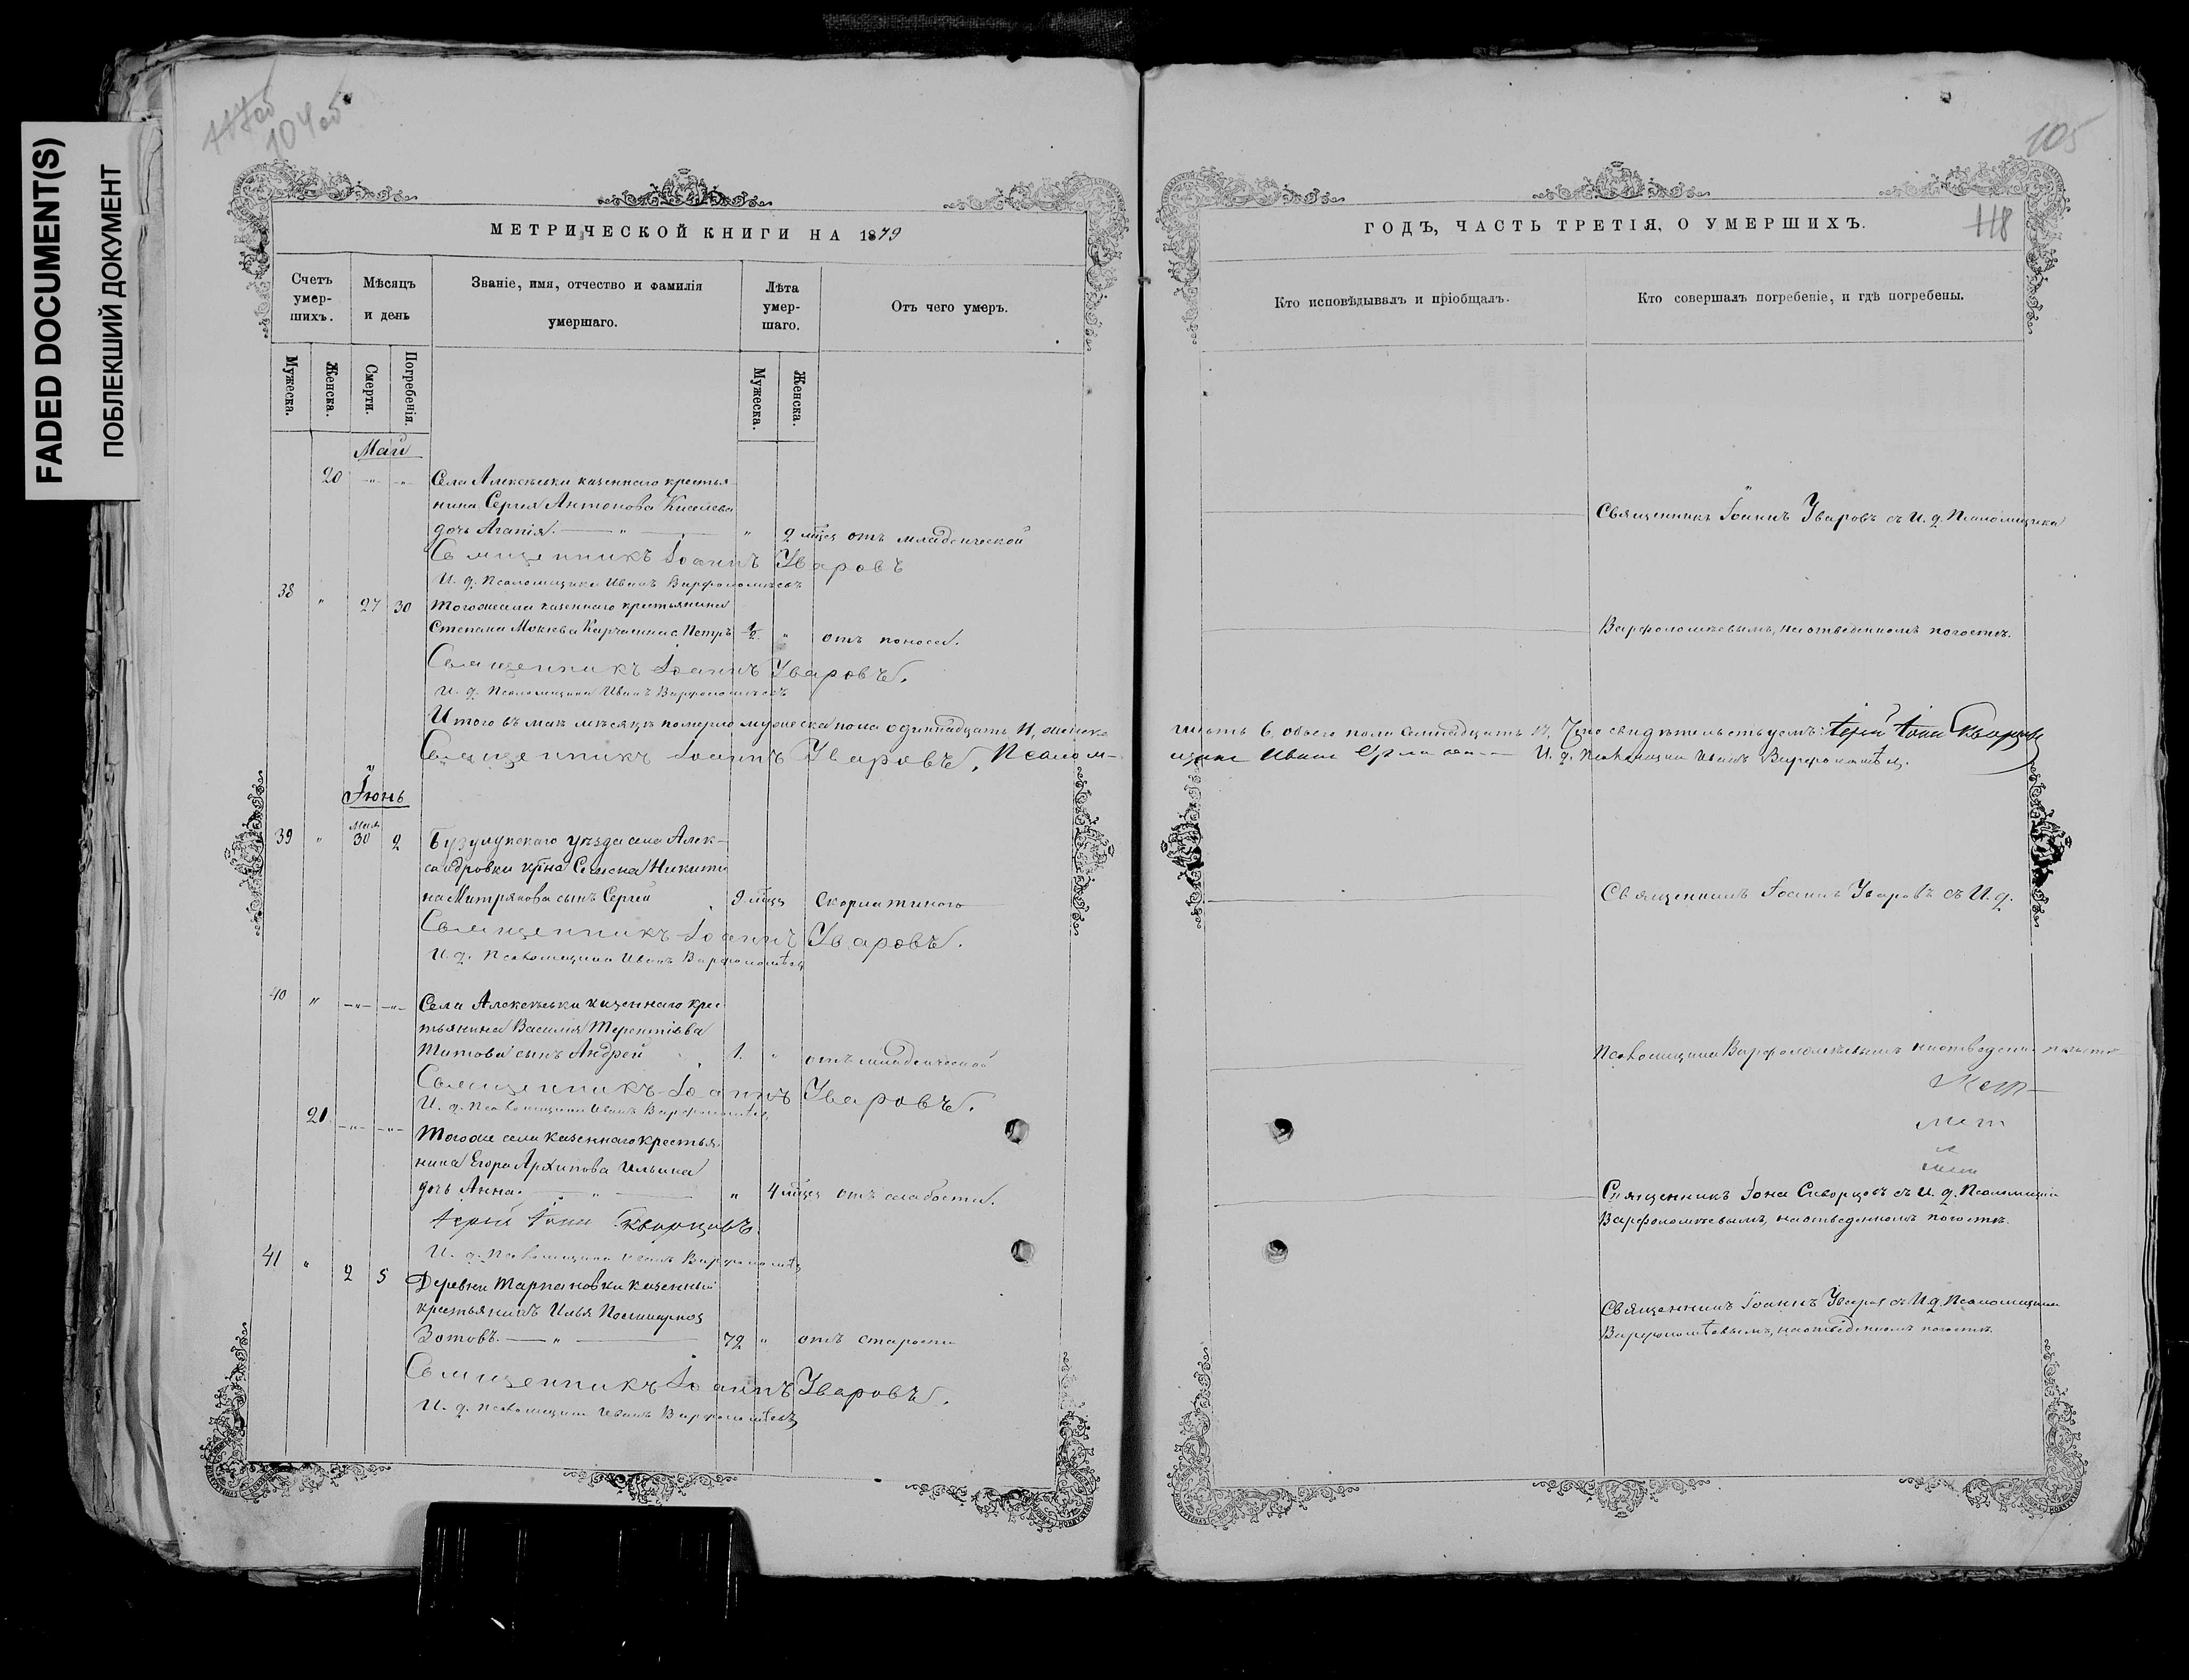 FADED DOCUMENT(S)
ПОБЛЕКШИЙ ДОКУМЕНТ
117об
104об
МЕТРИЧЕСКОЙ КНИГИ НА 1879
Счетъ умер-шихъ.
Мѣсяцъ и день
Званіе, имя, отчество и фамилія умершаго.
Лѣта умер-шаго.
Отъ чего умеръ.
Мужеска.
Женска.
Смерти.
Погребенія.
Мужеска.
Женска.
Май
20 -"- -"- Села Алексѣевки казеннаго крестья
нина Сергея Антонова
дочь Агапія. " " 2 мѣсц отъ младенческой
Священникъ Іоаннъ Уваровъ
И. д. Псаломщика Иванъ Варфоломѣевъ
38 " 27 30 Тогоже села казеннаго крестьянина
Степана Мокѣева с. Петръ 1/2 " отъ поноса.
Священникъ Іоаннъ Уваровъ.
И. д. Псаломщика Иванъ Варфоломѣевъ
Итого въ маѣ мѣсяцѣ померло мужеска пола одиннадцать 11, женска
Священникъ Іоаннъ Уваровъ, Псалом-
Іюнь
39 " Мая 30 2 Бузулукскаго уѣзда села Алек-
сандровки кр-на Семена Никити
на Митрякова сынъ Сергей 9 мѣсц
Священникъ Іоаннъ Уваровъ.
И. д. Псаломщика Иванъ Варфоломѣевъ
40 " -"- -"- Села Алексѣевки казеннаго крес
тьянина Василія Терентіева
Титова сынъ Андрей 1. " отъ младенческой
Священникъ Іоаннъ Уваровъ.
И. д. Псаломщика Иванъ Варфоломѣевъ
21 -"- -"- Тогоже села казеннаго крестья
нина Егора Архипова Ильина
дочь Анна. " " 4 мѣсц отъ слабости.
Іерей Іона Скворцовъ
И. д. Псаломщика Иванъ Варфоломѣевъ
41 " 2 5 Деревни казенный
крестьянинъ Илья
Зотовъ. " 72 " отъ старости
Священникъ Іоаннъ Уваровъ.
И. д. Псаломщика Иванъ Варфоломѣевъ
105
118
ГОДЪ, ЧАСТЬ ТРЕТІЯ, О УМЕРШИХЪ.
Кто исповѣдывалъ и пріобщалъ.
Кто совершалъ погребеніе, и гдѣ погребены.
Священникъ Іоаннъ Уваровъ съ И. д. Псаломщика
Варфоломѣевымъ, на отведенномъ погостѣ.
шесть 6, обоего пола семнадцать 17, Что свидѣтельствуемъ: Іерей Іона Скворцовъ
щикъ Иванъ И. д. Псаломщика Иванъ Варфоломѣевъ.
Священникъ Іоаннъ Уваровъ съ И. д.
Псаломщика Варфоломѣевымъ на отведенномъ погостѣ
Священникъ Іона Скворцовъ съ И. д. Псаломщика
Варфоломѣевымъ, на отведенномъ погостѣ.
Священникъ Іоаннъ Уваровъ съ И. д. Псаломщика
Варфоломѣевымъ, на отведенномъ погостѣ.